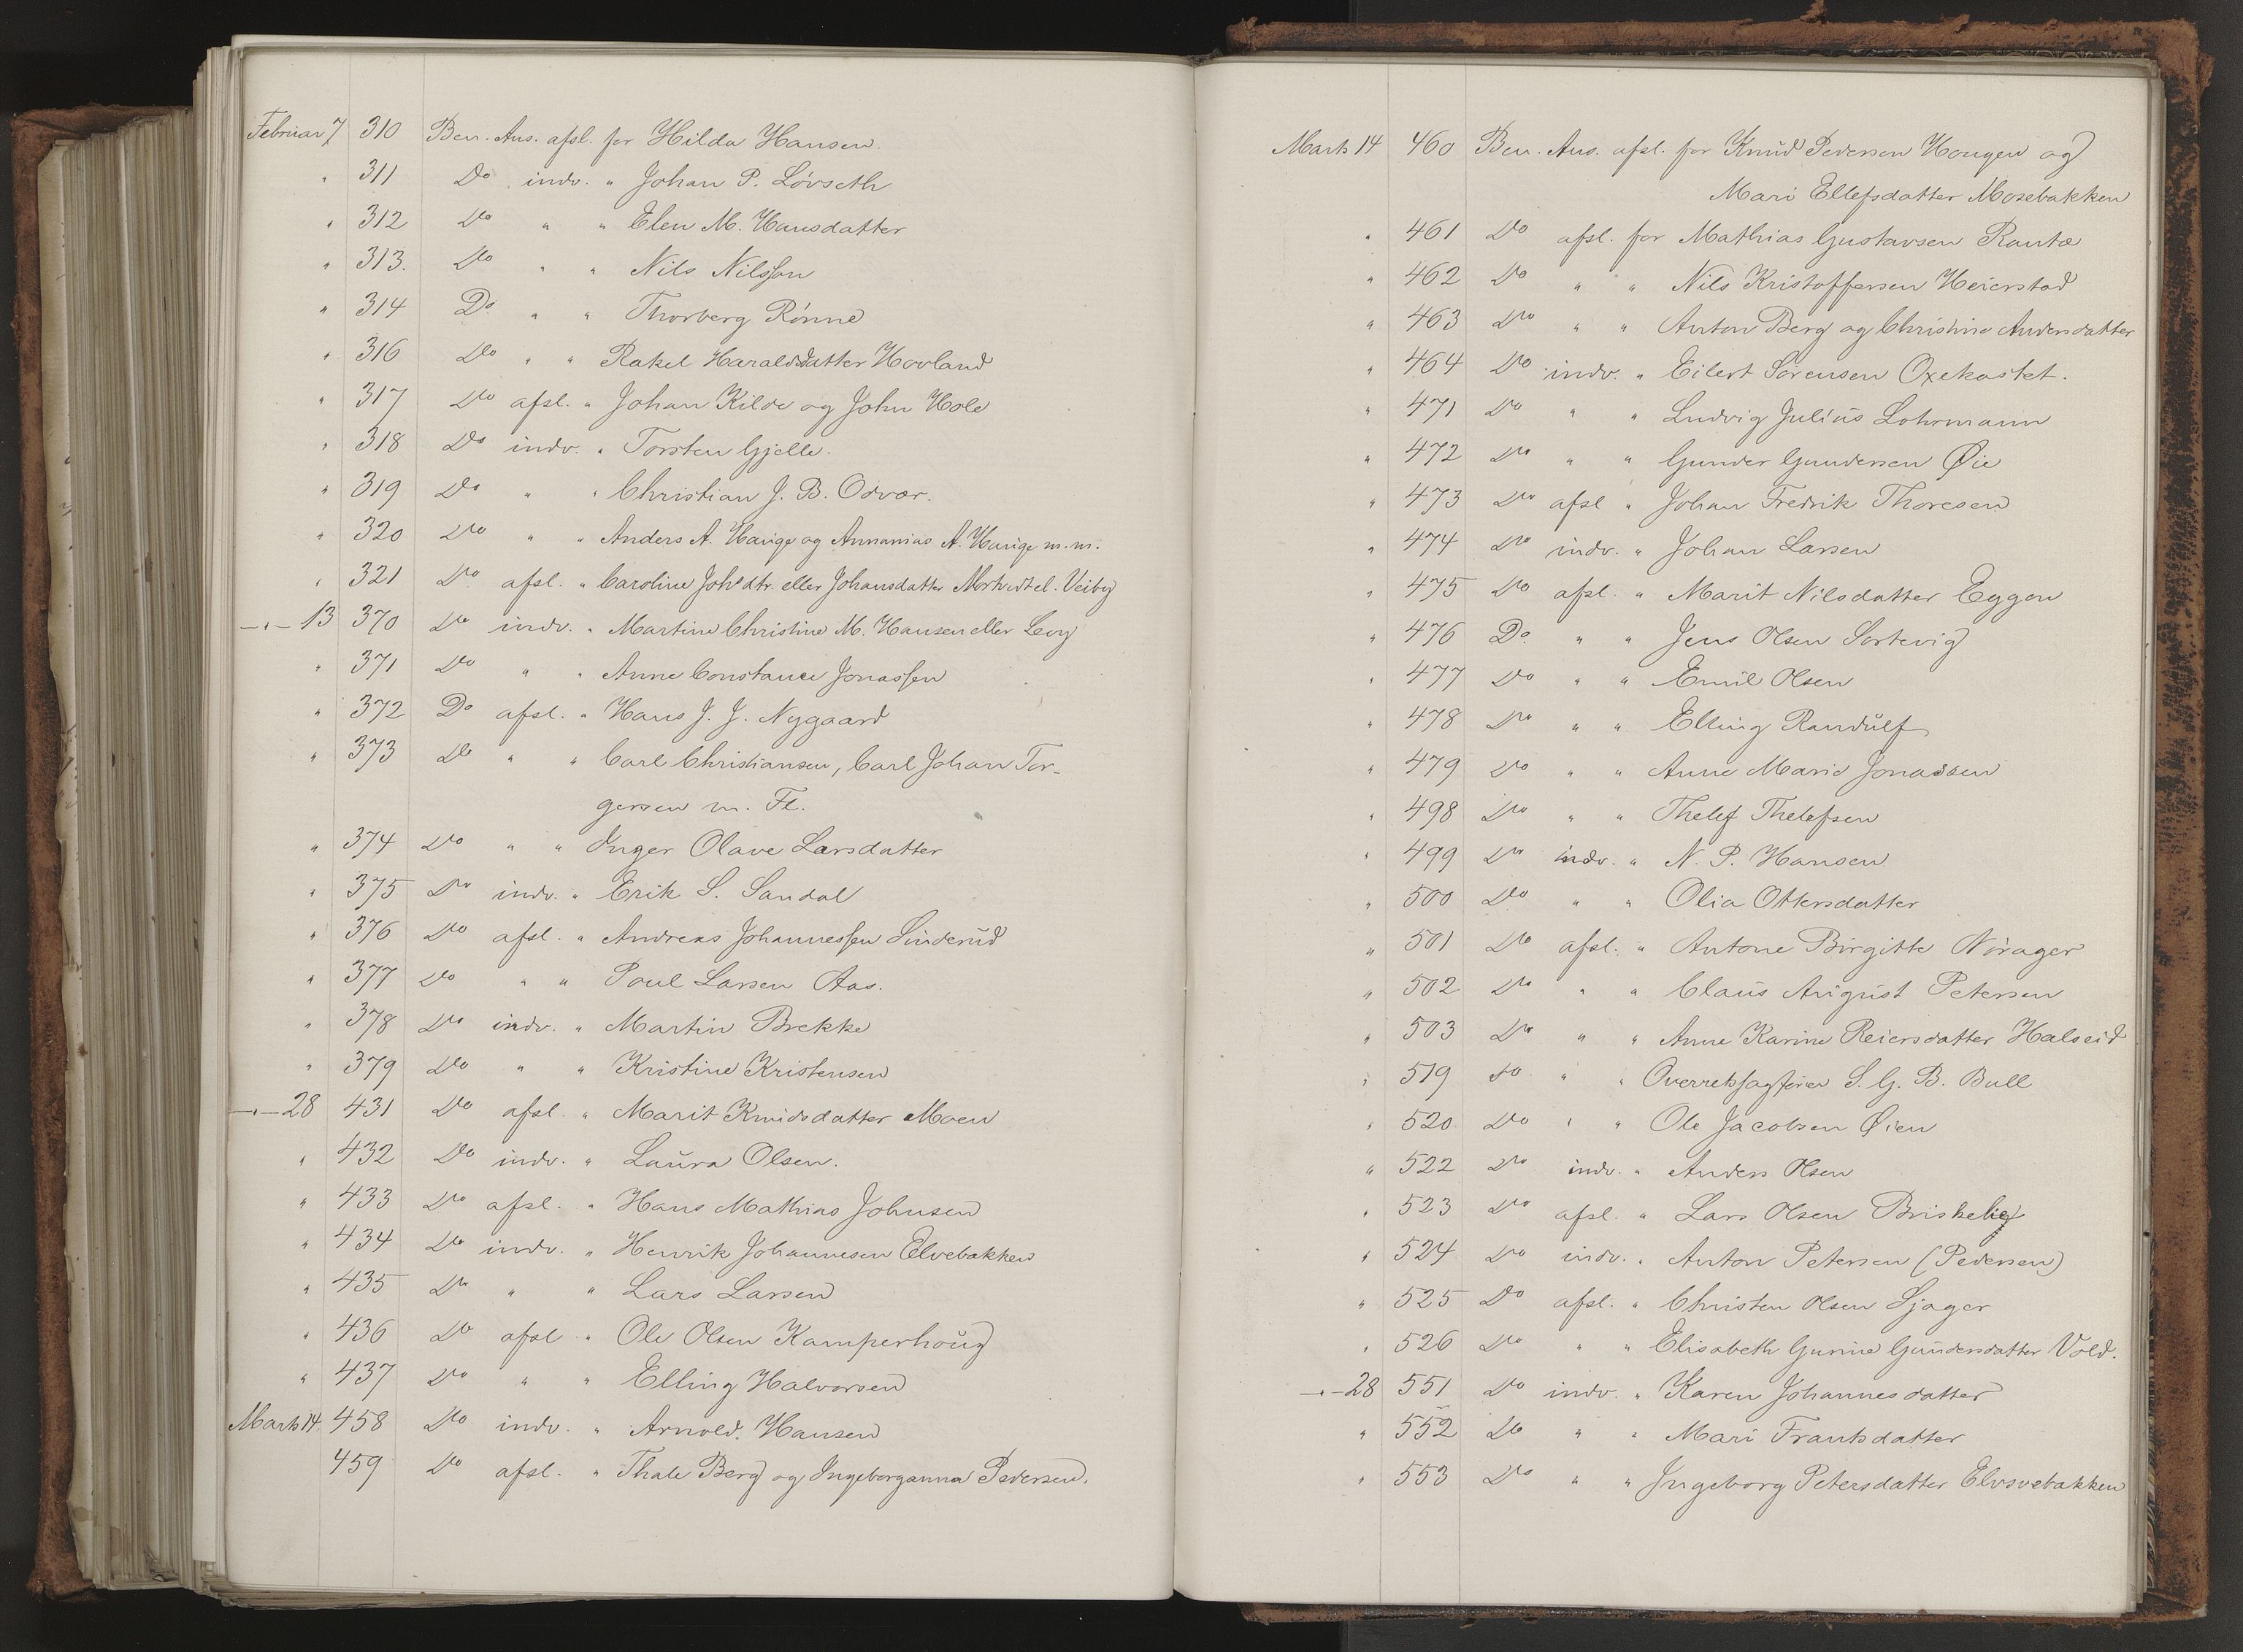 Februar 7 310 Ben. Ans. afsl. for Hilda Hansen.
" 311 Do indv. " Johan P. Lövseth
" 312 Do " " Elen M. Hansdatter
" 313. Do " " Nils Nilssen
" 314 Do " " Thorberg Rönne
" 316 Do " " Rakel Haraldsdatter Hovland
" 317 Do afsl. " Johan Kilde og John Hole
" 318 Do indv. " Torsten Gjelle.
" 319 Do " " Christian J. B. Odvar.
" 320 Do " " Anders A. Hauge og Annanias A. Hauge m. m.
" 321 Do afsl. " Caroline Johsdtr. eller Johansdatter Mortvedt el. Veiby
—"— 13 370 Do indv. " Martine Christine M. Hansen eller Levy
" 371 Do " " Anne Constance Jonassen
" 372 Do afsl. " Hans J. J. Nygaard
" 373 Do " " Carl Christiansen, Carl Johan Tor-
gersen m. Fl.
" 374 Do " " Inger Olave Larsdatter
" 375 Do indv. " Erik S. Sandal
" 376 Do afsl. " Andreas Johannessen Sinderud
" 377 Do " " Poul Larsen Aas.
" 378 Do indv. " Martin Brekke
" 379 Do " " Kristine Kristensen
—"— 28 431 Do afsl. " Marit Knudsdatter Moen
" 432 Do indv. " Laura Olsen.
" 433 Do afsl. " Hans Mathias Johnsen
" 434 Do indv. " Henrik Johannesen Elvebakken
" 435 Do " " Lars Larsen
" 436 Do afsl " Ole Olsen Kamperhoug
" 437 Do " " Elling Halvorsen
Marts 14. 458 Do indv. " Arnold. Hansen
459 Do afsl. " Thale Berg og Ingeborganna Pedersen.
Marts 14 460 Ben. Ans. afsl. for Knud Pedersen Hougen og
Mari Ellefsdatter Mosebakken
" 461 Do afsl. for Mathias Gustavsen Rautæ
" 462 Do " " Nils Kristoffersen Heierstad
" 463 Do " " Anton Berg og Christine Andersdatter
" 464 Do indv. " Eilert Sörensen Oxekastet.
" 471 Do " " Ludvig Julius Lohrmann
" 472 Do " " Gunder Gundersen Øie
" 473 Do afsl " Johan Fredrik Thoresen
" 474 Do indv. " Johan Larsen
" 475 Do afsl. " Marit Nilsdatter Eggen
" 476 Do. " " Jens Olsen Sortevig
" 477 Do " " Emil Olsen
" 478 Do " " Elling Randulf
" 479 Do " " Anne Marie Jonassen
" 498 Do " " Thelef Thelefsen
" 499 Do indv. " N. P. Hansen
" 500 Do " " Olia Ottersdatter
" 501 Do afsl. " Antone Birgitte Nörager
" 502 Do " " Claus August Petersen
" 503 Do " " Anne Karine Reiersdatter Halseid
" 519 do " " Overretssagförer S. G. B. Bull
" 520 Do " " Ole Jacobsen Øien
" 522 Do indv. " Anders Olsen
" 523 Do afsl. " Lars Olsen Briskelie
" 524 Do indv. " Anton Petersen (Pedersen)
" 525 Do afsl. " Christen Olsen Sjager
" 526 Do " " Elisabeth Gurine Gundersdatter Vold.
—"— 28 551 Do indv. " Karen Johannesdatter
" 552 Do " " Mari Frantsdatter
" 553 Do " " Ingeborg Petersdatter Elvsvebakken